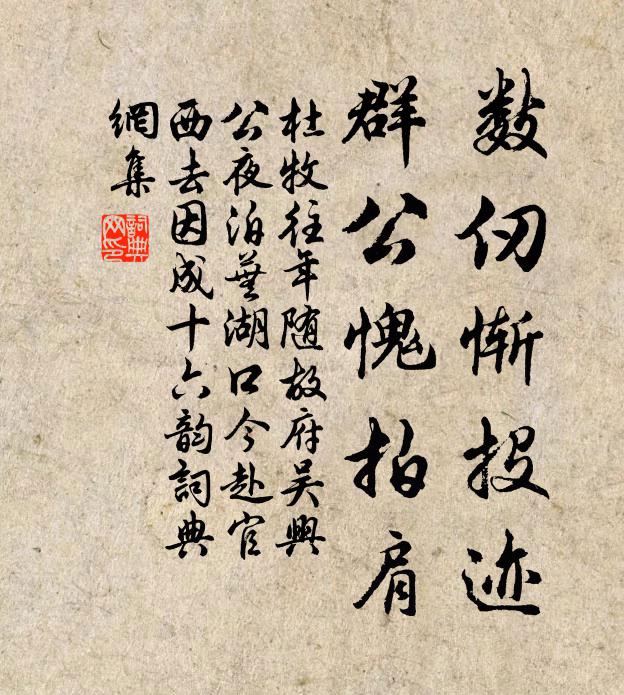 数仞惭投迹
群公愧拍肩
杜牧往年随故府吴興
公夜泊蕪湖口今赴官
西去因成十六韵詞典
網集
詞典网印